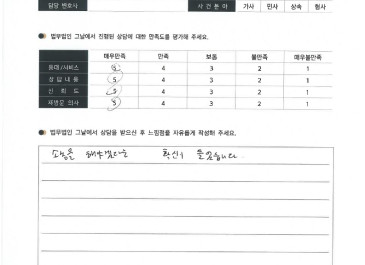 담당 변호사 사건분야 가사 민사 상속 형사
법무법인 그날에서 진행된 상담에 대한 만족도를 평가해 주세요.
매우만족 만족 보통 불만족 매우불만족
응대/서비스 5 4 3 2 1
상담내용 5 4 3 2 1
신뢰도 5 4 3 2 1
재방문 의사 5 4 3 2 1
법무법인 그날에서 상담을 받으신 후 느낌점을 자유롭게 작성해 주세요.
소송을 해야겠다는 확신이 들었습니다.